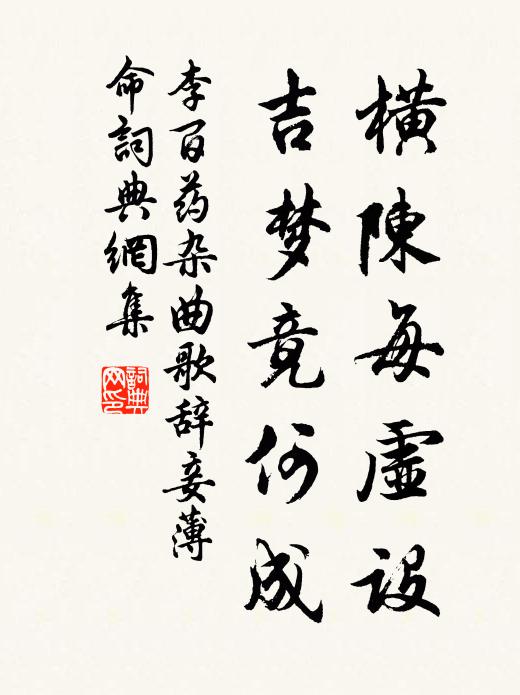 横陳每虛設
吉梦竟何成
李百药杂曲歌辞妾薄
命詞典網集
詞典
网印